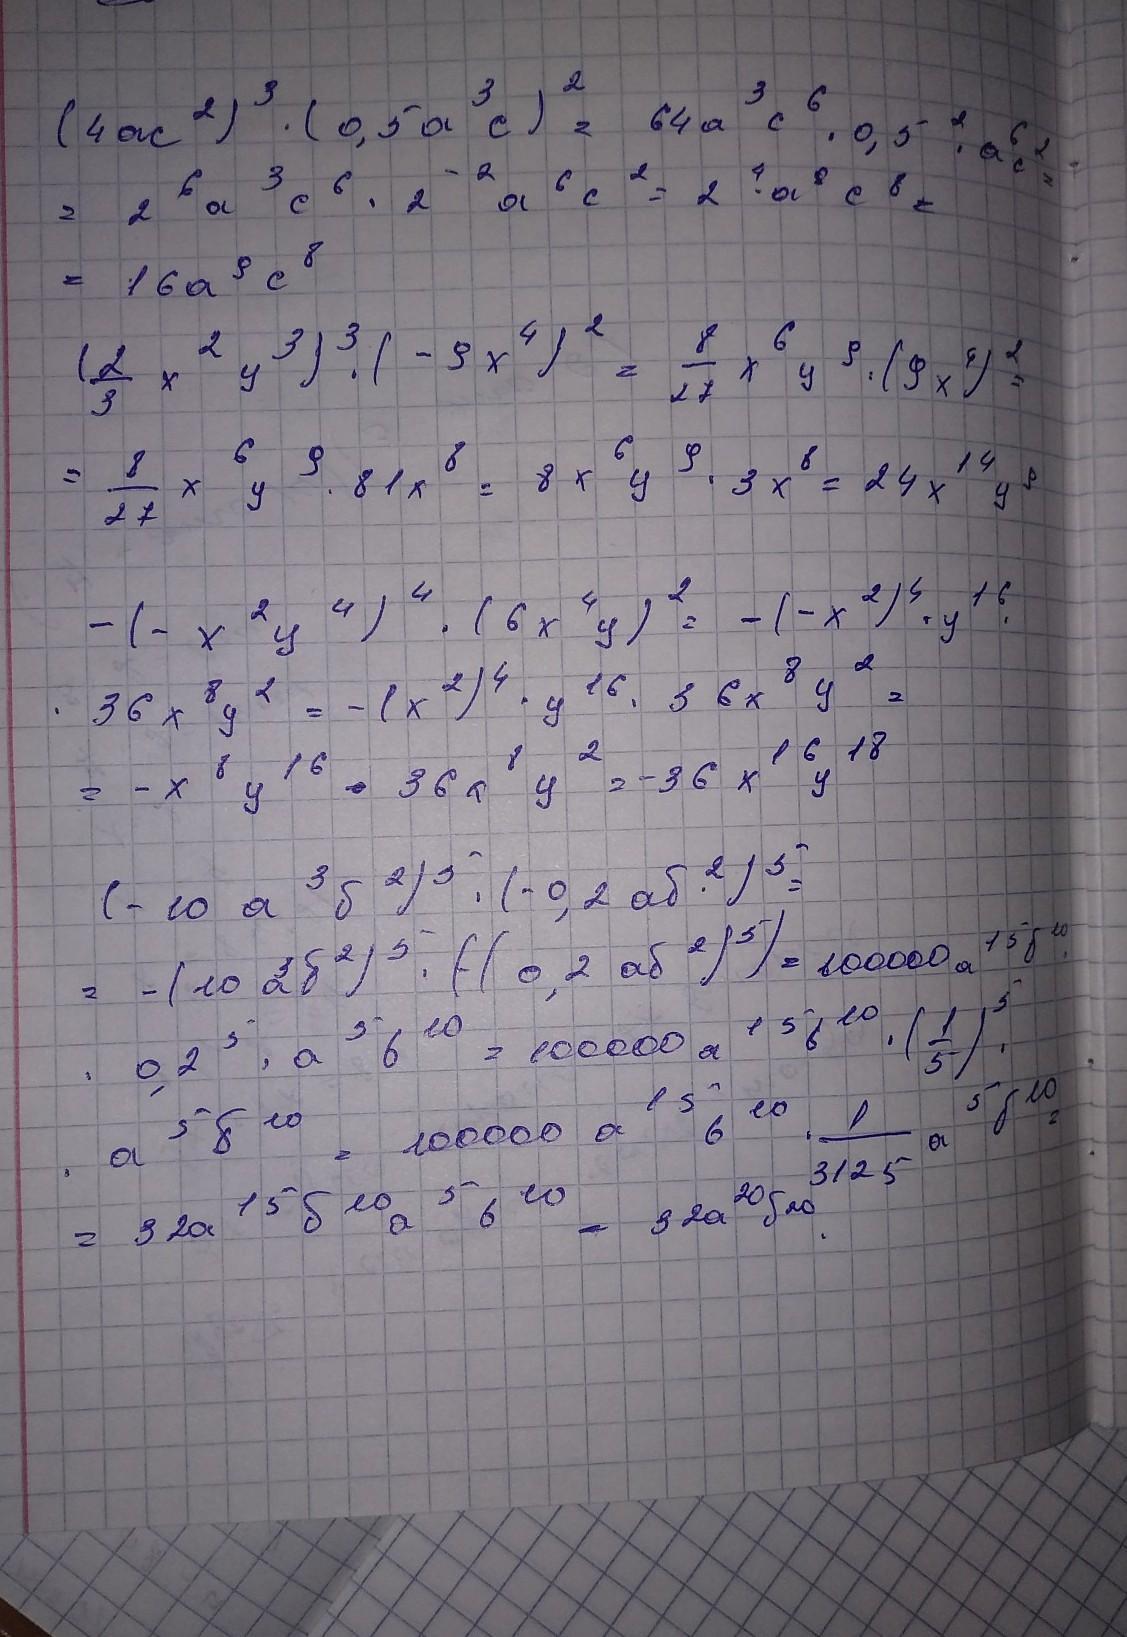 (4ac²)³·(0,5a³c)² = 64a³c⁶·0,5²·a⁶c² =
= 2⁶a³c⁶·2⁻²a⁶c² = 2⁴·a⁹c⁸ =
= 16a⁹c⁸
(2/3 x²y³)³·(-9x⁴)² = 8/27 x⁶y⁹·(9x⁴)² =
= 8/27 x⁶y⁹·81x⁸ = 8x⁶y⁹·3x⁸ = 24x¹⁴y⁹
-(-x²y⁴)⁴·(6x⁴y)² = -(-x²)⁴·y¹⁶·
·36x⁸y² = -(x²)⁴·y¹⁶·36x⁸y² =
= -x⁸y¹⁶·36x⁸y² = -36x¹⁶y¹⁸
(-10a³б²)⁵·(-0,2аб²)⁵ =
= -(10а³б²)⁵·(-(0,2аб²)⁵) = 100000а¹⁵б¹⁰·
·0,2⁵·а⁵б¹⁰ = 100000а¹⁵б¹⁰·(1/5)⁵·
·а⁵б¹⁰ = 100000а¹⁵б¹⁰·1/3125 а⁵б¹⁰ =
= 32а¹⁵б¹⁰а⁵б¹⁰ = 32а²⁰б²⁰.